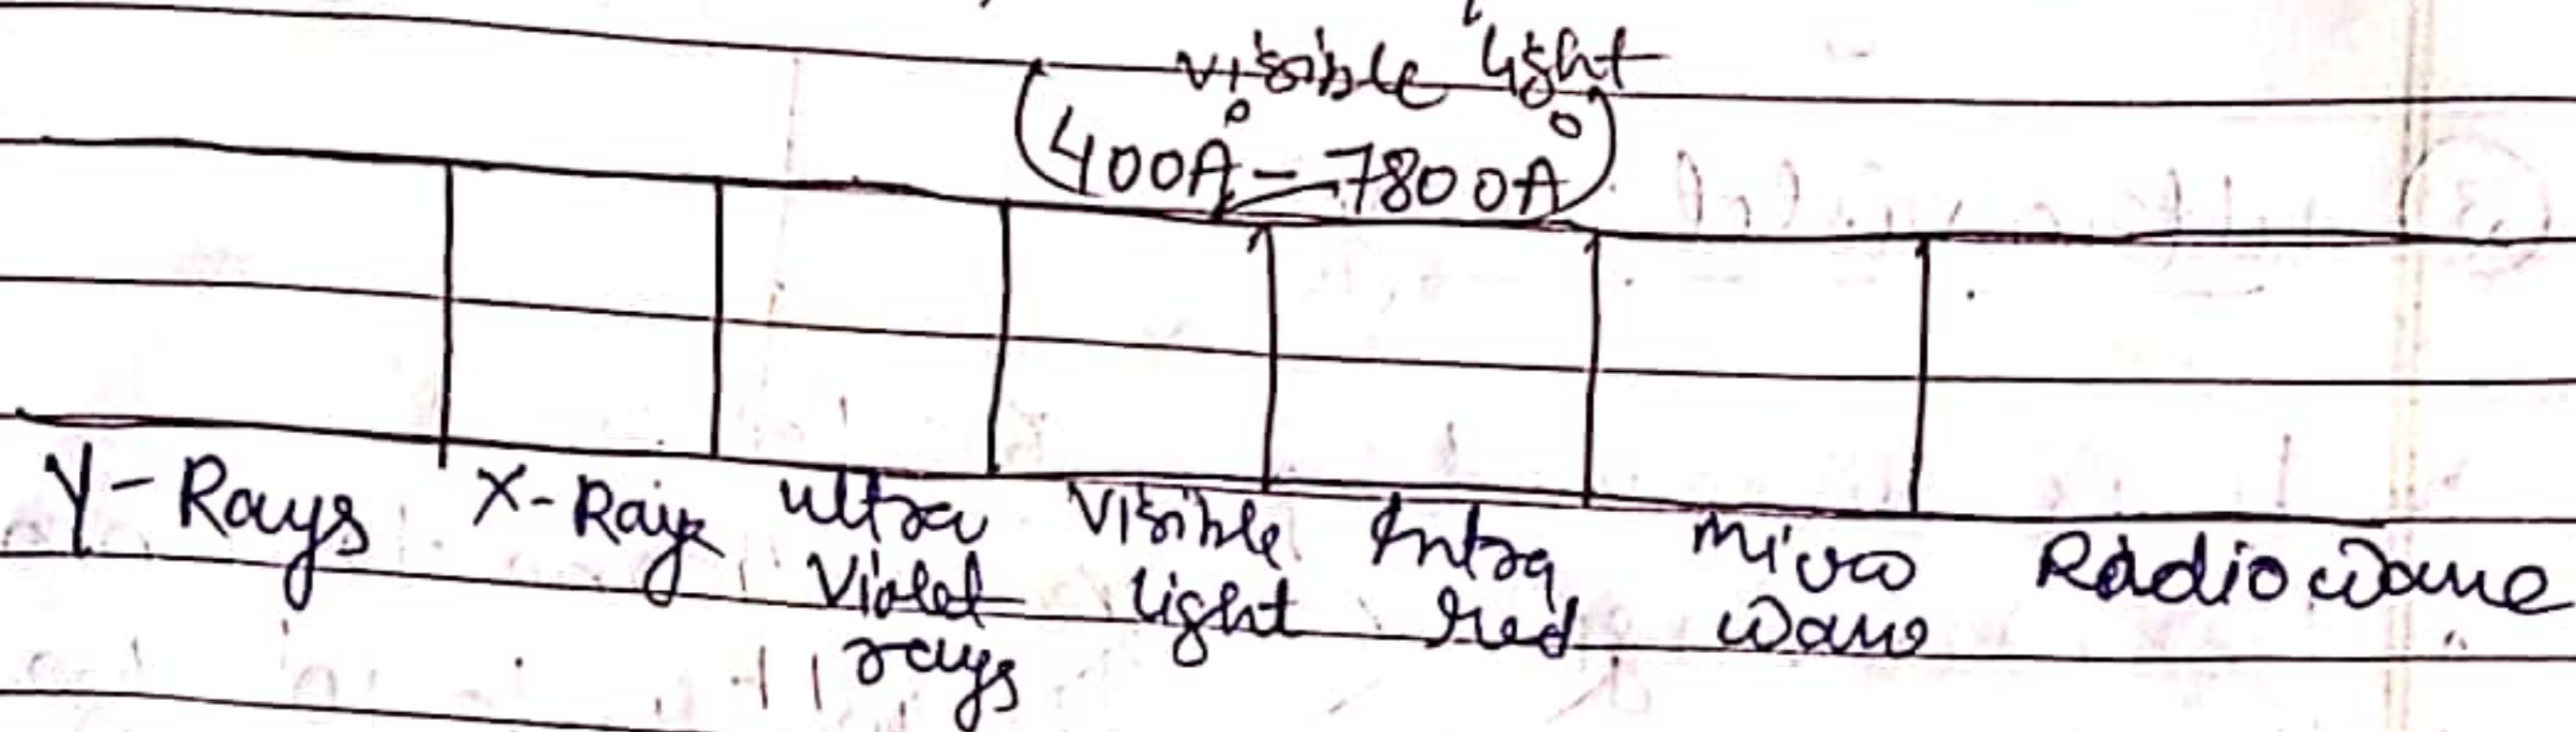 visible light
(400Å - 7800Å)
γ-Rays X-Rays ultra violet rays Visible light Infra red Micro wave Radio wave